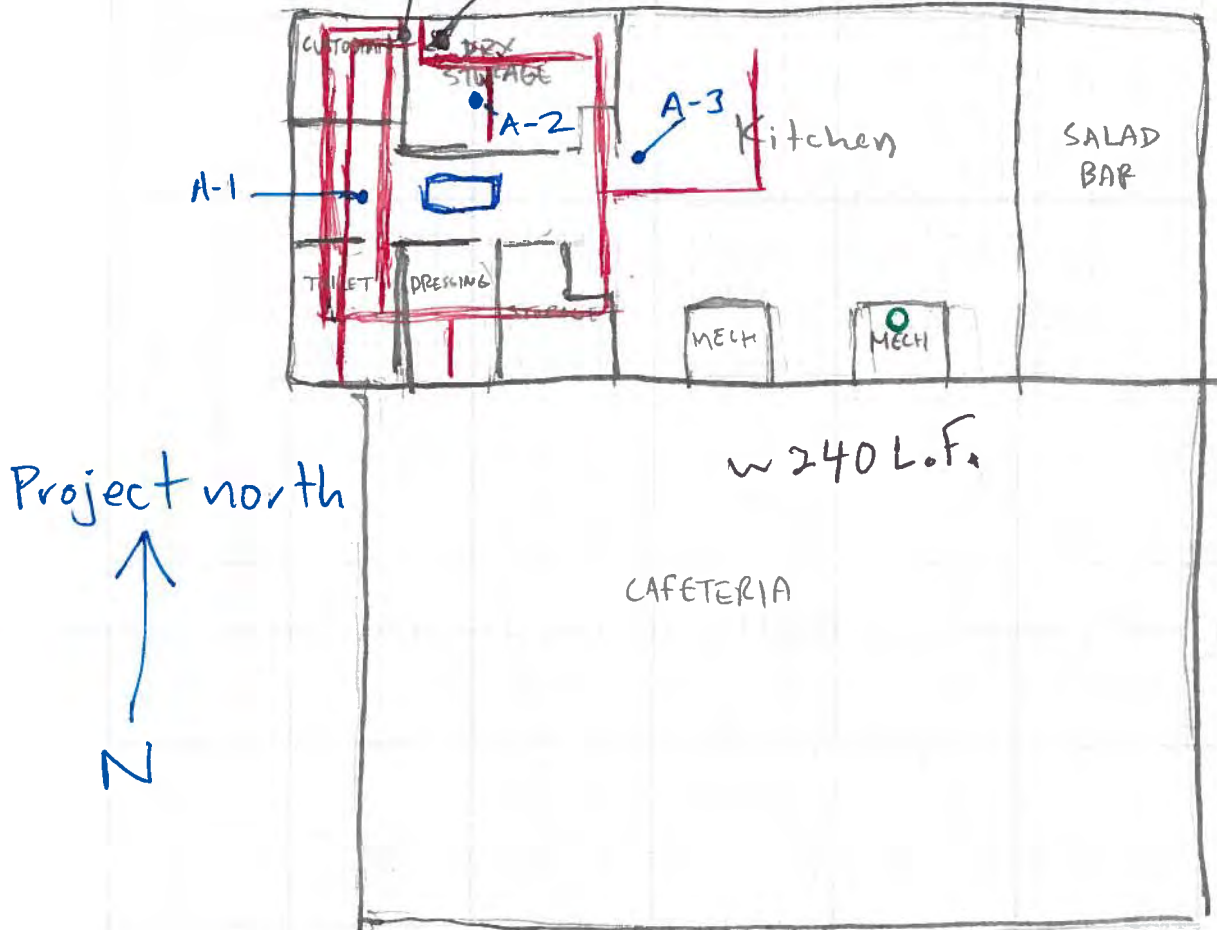 CUSTODIAN
DRY
STORAGE
A-2
A-3
Kitchen
SALAD
BAR
A-1
TOILET
DRESSING
STORAGE
MECH
MECH
~ 240 L.F.
Project north
N
CAFETERIA